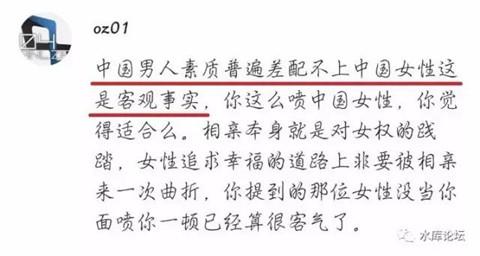 oz01
中国男人素质普遍差配不上中国女性这
是客观事实，你这么喷中国女性，你觉
得适合么。相亲本身就是对女权的践
踏，女性追求幸福的道路上非要被相亲
来一次曲折，你提到的那位女性没当你
面喷你一顿已经算很客气了。
水库论坛